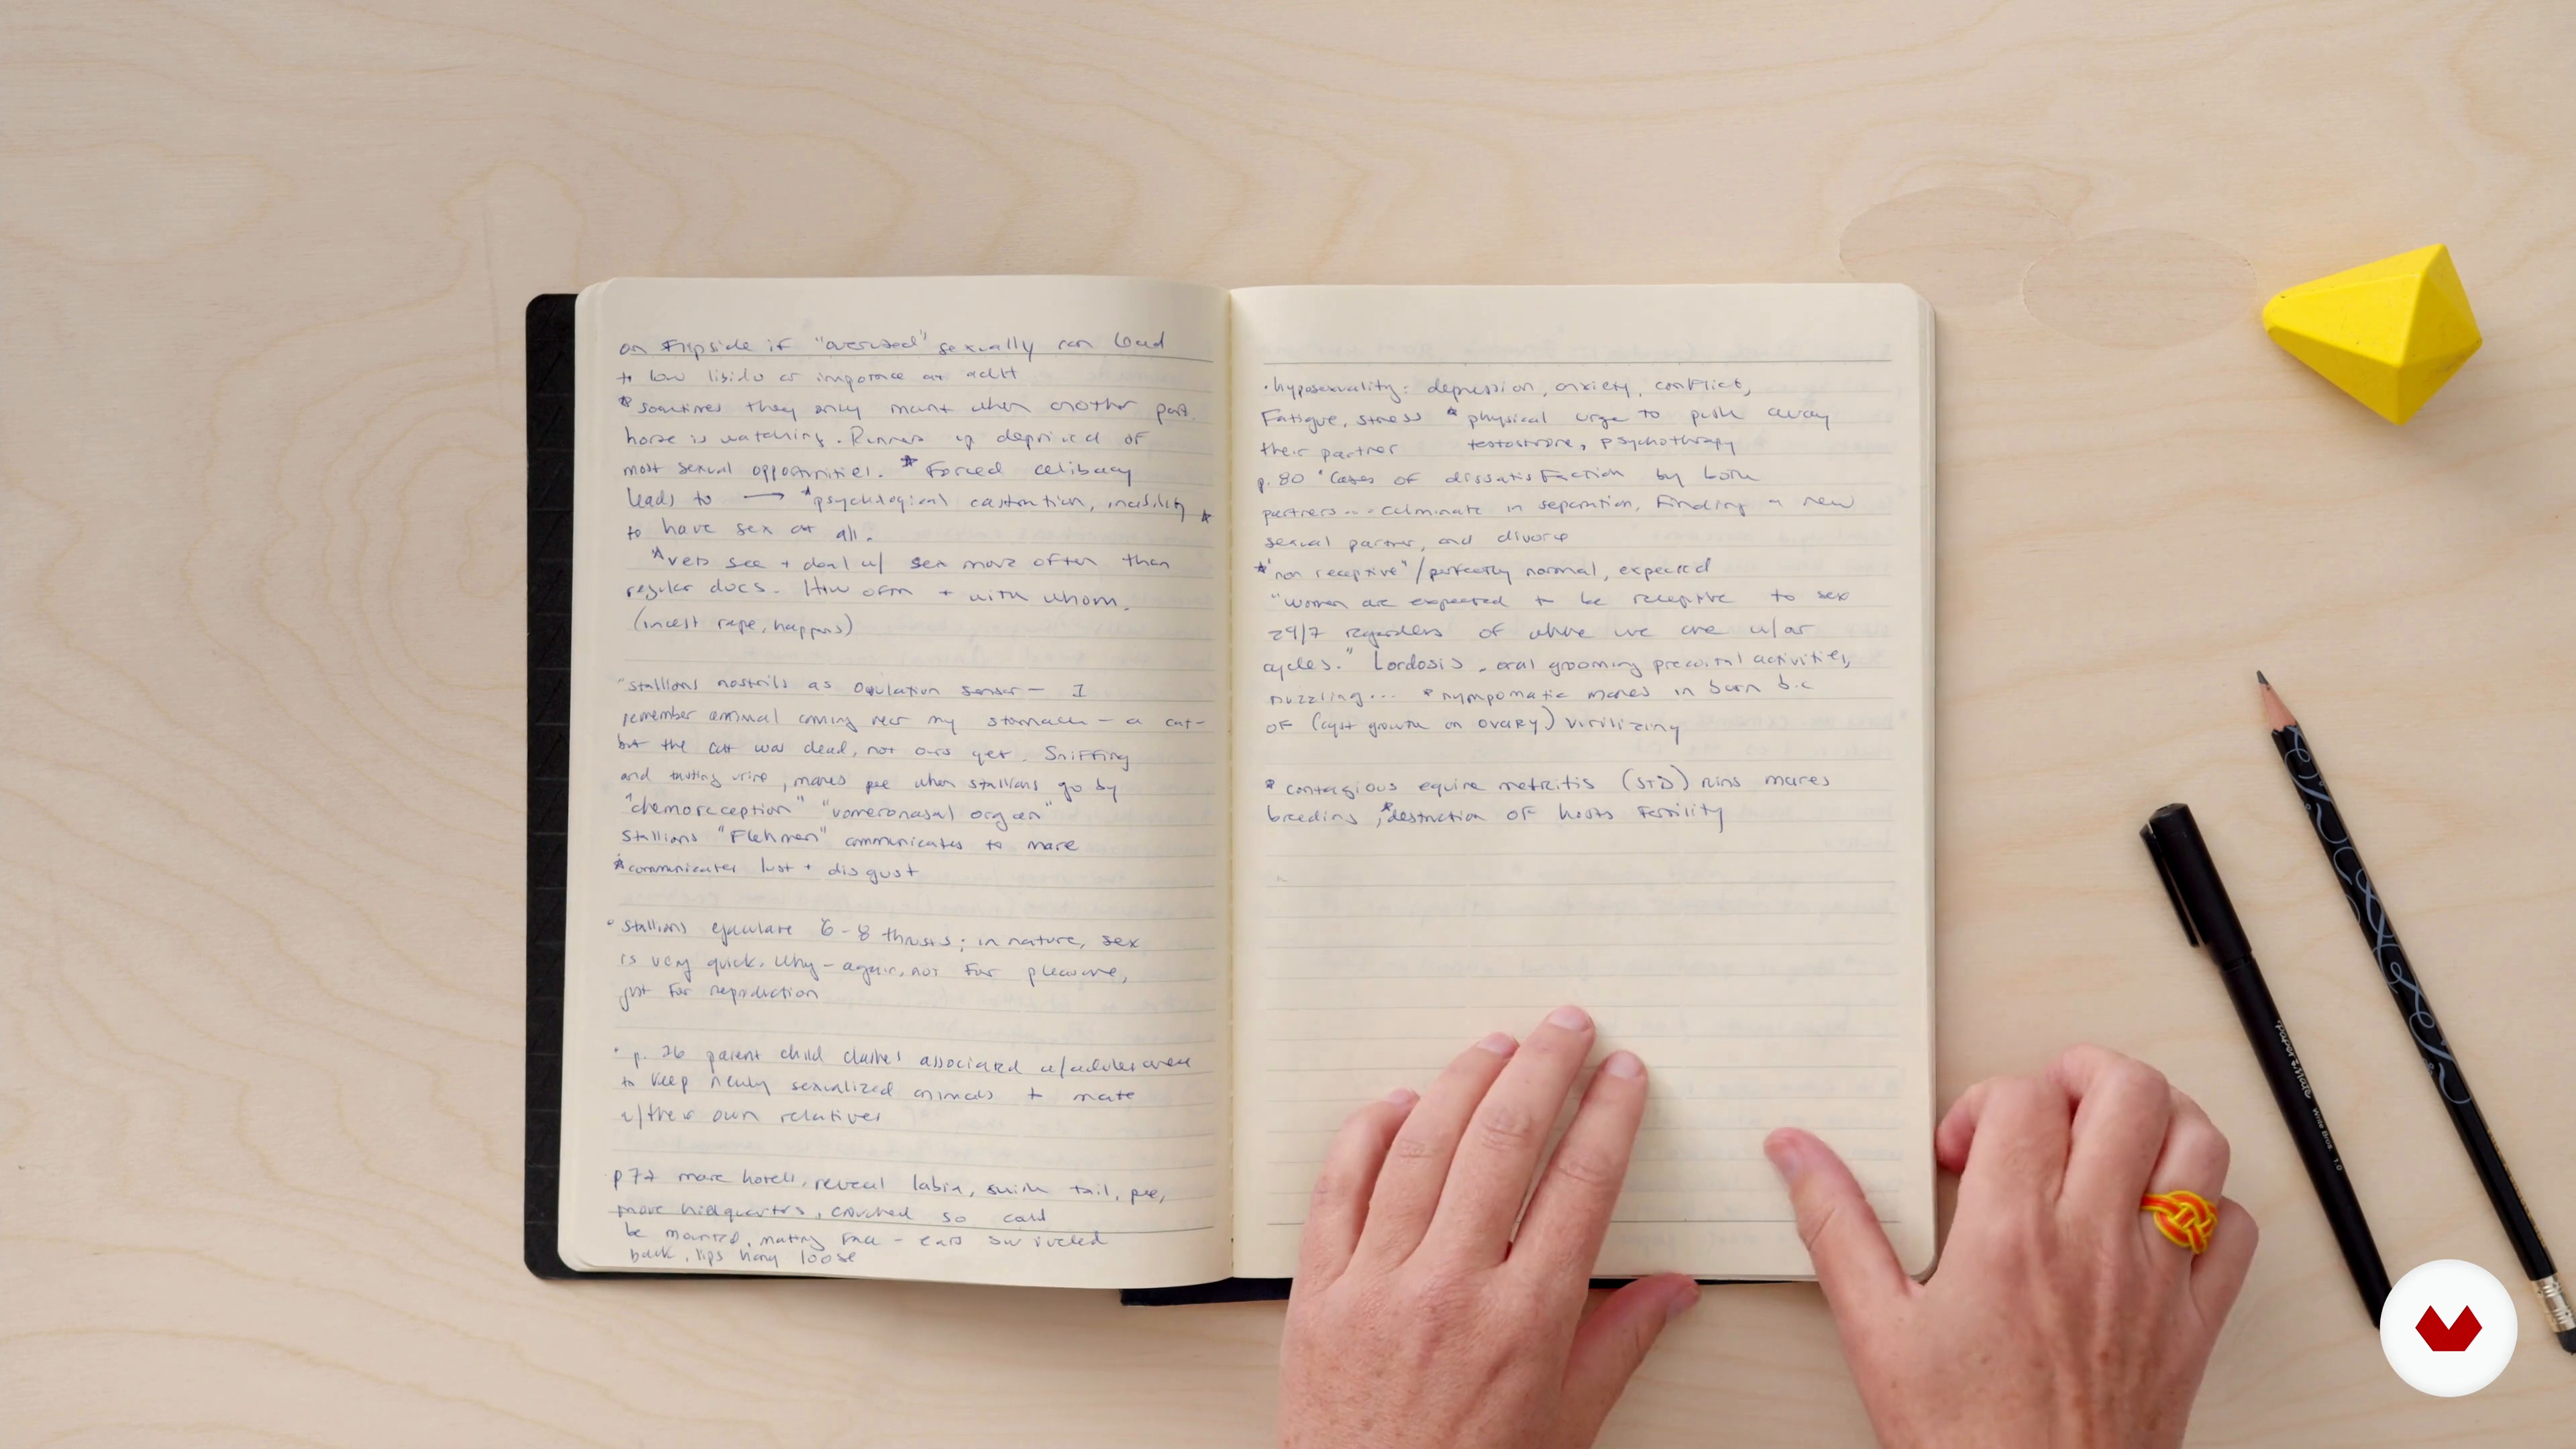 on flipside if "overused" sexually can lead
to low libido or impotence as adult
*sometimes they only mount when another
horse is watching. Runners up deprived of
most sexual opportunities. *Forced celibacy
leads to → *psychological castration, inability *
to have sex at all.
*vets see + deal w/ sex more often than
regular docs. How often + with whom.
(incest rape, happens)
"stallions nostrils as ovulation sensor - I
remember animal coming near my stomach - a cat-
but the cat was dead, not ours yet. Sniffing
and tasting urine, mares pee when stallions go by
"chemoreception" "vomeronasal organ"
Stallions "Flehmen" communicates to mare
*communicates lust + disgust
• Stallions ejaculate 6-8 thrusts; in nature, sex
is very quick. Why - again, not for pleasure,
just for reproduction
• p. 26 parent child clashes associated w/adolescence
to keep newly sexualized animals to mate
w/their own relatives
p 77 mare horses, reveal labia, swish tail, pee,
move hindquarters, crouched so could
be mounted, mating face - ears swiveled
back, lips hang loose
• hyposexuality: depression, anxiety, conflict,
Fatigue, stress * physical urge to push away
their partner testosterone, psychotherapy
p. 80 "Cases of dissatisfaction by both
partners... culminate in separation, finding a new
sexual partner, and divorce
*"non receptive"/perfectly normal, expected
"Women are expected to be receptive to sex
24/7 regardless of where we are w/our
cycles." Lordosis - oral grooming precoital activities,
nuzzling... * nympomatic mares in barn b.c
of (cyst growth on ovary) virilizing
* contagious equine metritis (STD) ruins mares
breeding, *destruction of hosts fertility
PaperMate Write Bros. 1.0